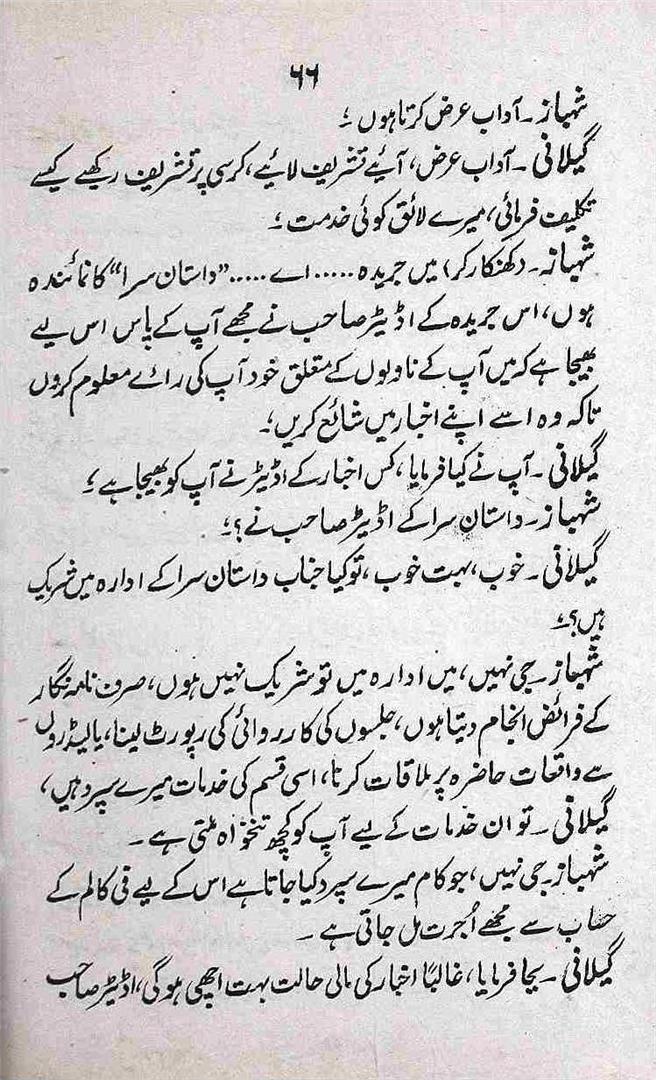 ۶۶
شہباز۔ آداب عرض کرتا ہوں ؛
گیلانی ۔ آداب عرض، آئیے تشریف لائیے، کرسی پر تشریف رکھیے کیسے
تکلیف فرمائی، میرے لائق کوئی خدمت ؛
شہباز۔ (کھنکار کر) میں جریدہ ..... اے ..... "داستان سرا" کا نمائندہ
ہوں، اس جریدہ کے اڈیٹر صاحب نے مجھے آپ کے پاس اس لیے
بھیجا ہے کہ میں آپ کے ناولوں کے متعلق خود آپ کی رائے معلوم کروں
تاکہ وہ اسے اپنے اخبار میں شائع کریں ؛
گیلانی ۔ آپ نے کیا فرمایا، کس اخبار کے اڈیٹر نے آپ کو بھیجا ہے ؛
شہباز۔ داستان سرا کے اڈیٹر صاحب نے؟ ؛
گیلانی ۔ خوب، بہت خوب، تو کیا جناب داستان سرا کے ادارہ میں شریک
ہیں؟ ؛
شہباز۔ جی نہیں، میں ادارہ میں تو شریک نہیں ہوں، صرف نامہ نگار
کے فرائض انجام دیتا ہوں، جلسوں کی کارروائی کی رپورٹ لینا، یا لیڈروں
سے واقعات حاضرہ پر ملاقات کرنا، اسی قسم کی خدمات میرے سپرد ہیں،
گیلانی ۔ تو ان خدمات کے لیے آپ کو کچھ تنخواہ ملتی ہے ۔
شہباز۔ جی نہیں، جو کام میرے سپرد کیا جاتا ہے اس کے لیے فی کالم کے
حساب سے مجھے اُجرت مل جاتی ہے ۔
گیلانی ۔ بجا فرمایا، غالباً اخبار کی مالی حالت بہت اچھی ہو گی، اڈیٹر صاحب